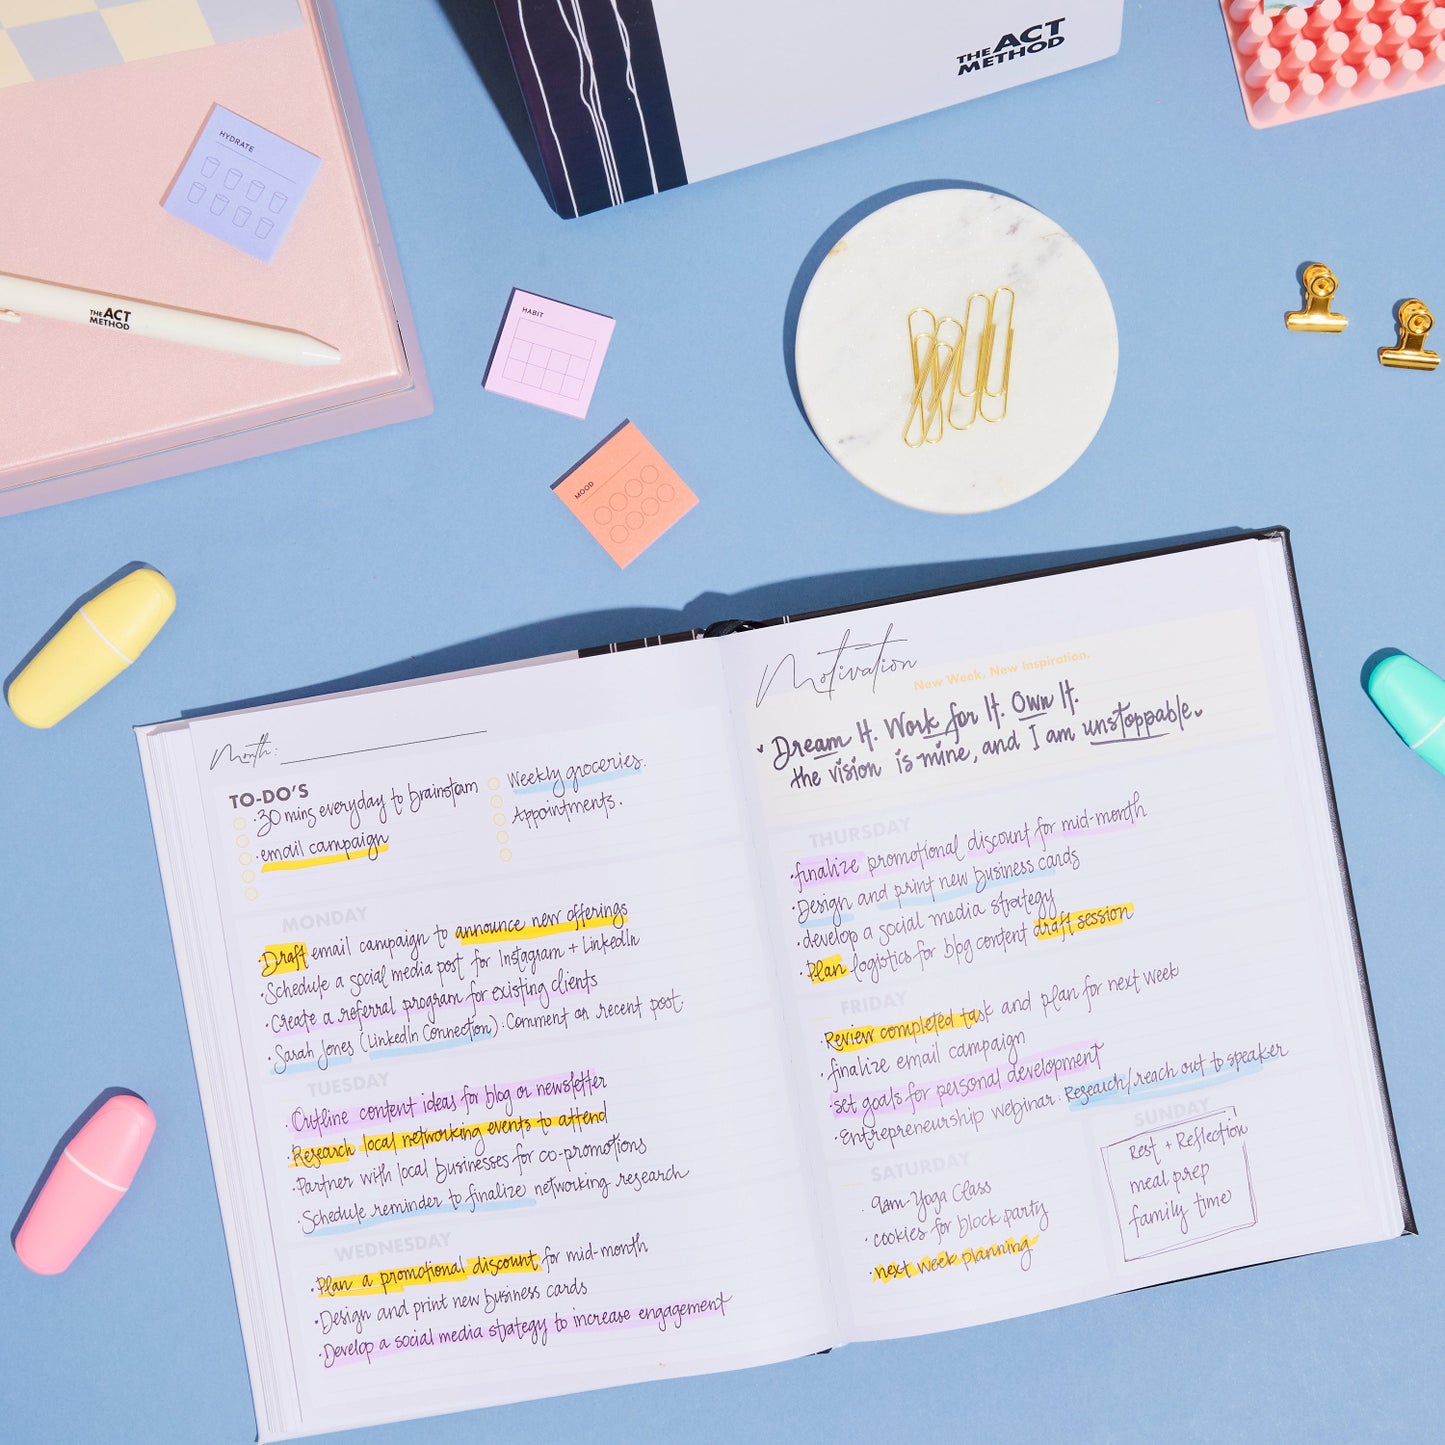 THE ACT
METHOD
HYDRATE
THE ACT
METHOD
HABIT
MOOD
Month:
TO-DO'S
· 30 mins everyday to brainstorm
· email campaign
Weekly groceries.
Appointments.
MONDAY
· Draft email campaign to announce new offerings
· Schedule a social media post for Instagram + LinkedIn
· Create a referral program for existing clients
· Sarah Jones (LinkedIn Connection): Comment on recent post.
TUESDAY
· Outline content ideas for blog or newsletter
· Research local networking events to attend
· Partner with local businesses for co-promotions
· Schedule reminder to finalize networking research
WEDNESDAY
· Plan a promotional discount for mid-month
· Design and print new business cards
· Develop a social media strategy to increase engagement
Motivation
New Week, New Inspiration.
Dream It. Work for It. Own It.
the vision is mine, and I am unstoppable.
THURSDAY
· finalize promotional discount for mid-month
· Design and print new business cards
· develop a social media strategy
· Plan logistics for blog content draft session
FRIDAY
· Review completed task and plan for next week
· finalize email campaign
· set goals for personal development
· Entrepreneurship webinar: Research/reach out to speaker
SATURDAY
· 9am-Yoga Class
· cookies for block party
· next week planning
SUNDAY
Rest + Reflection
meal prep
family time